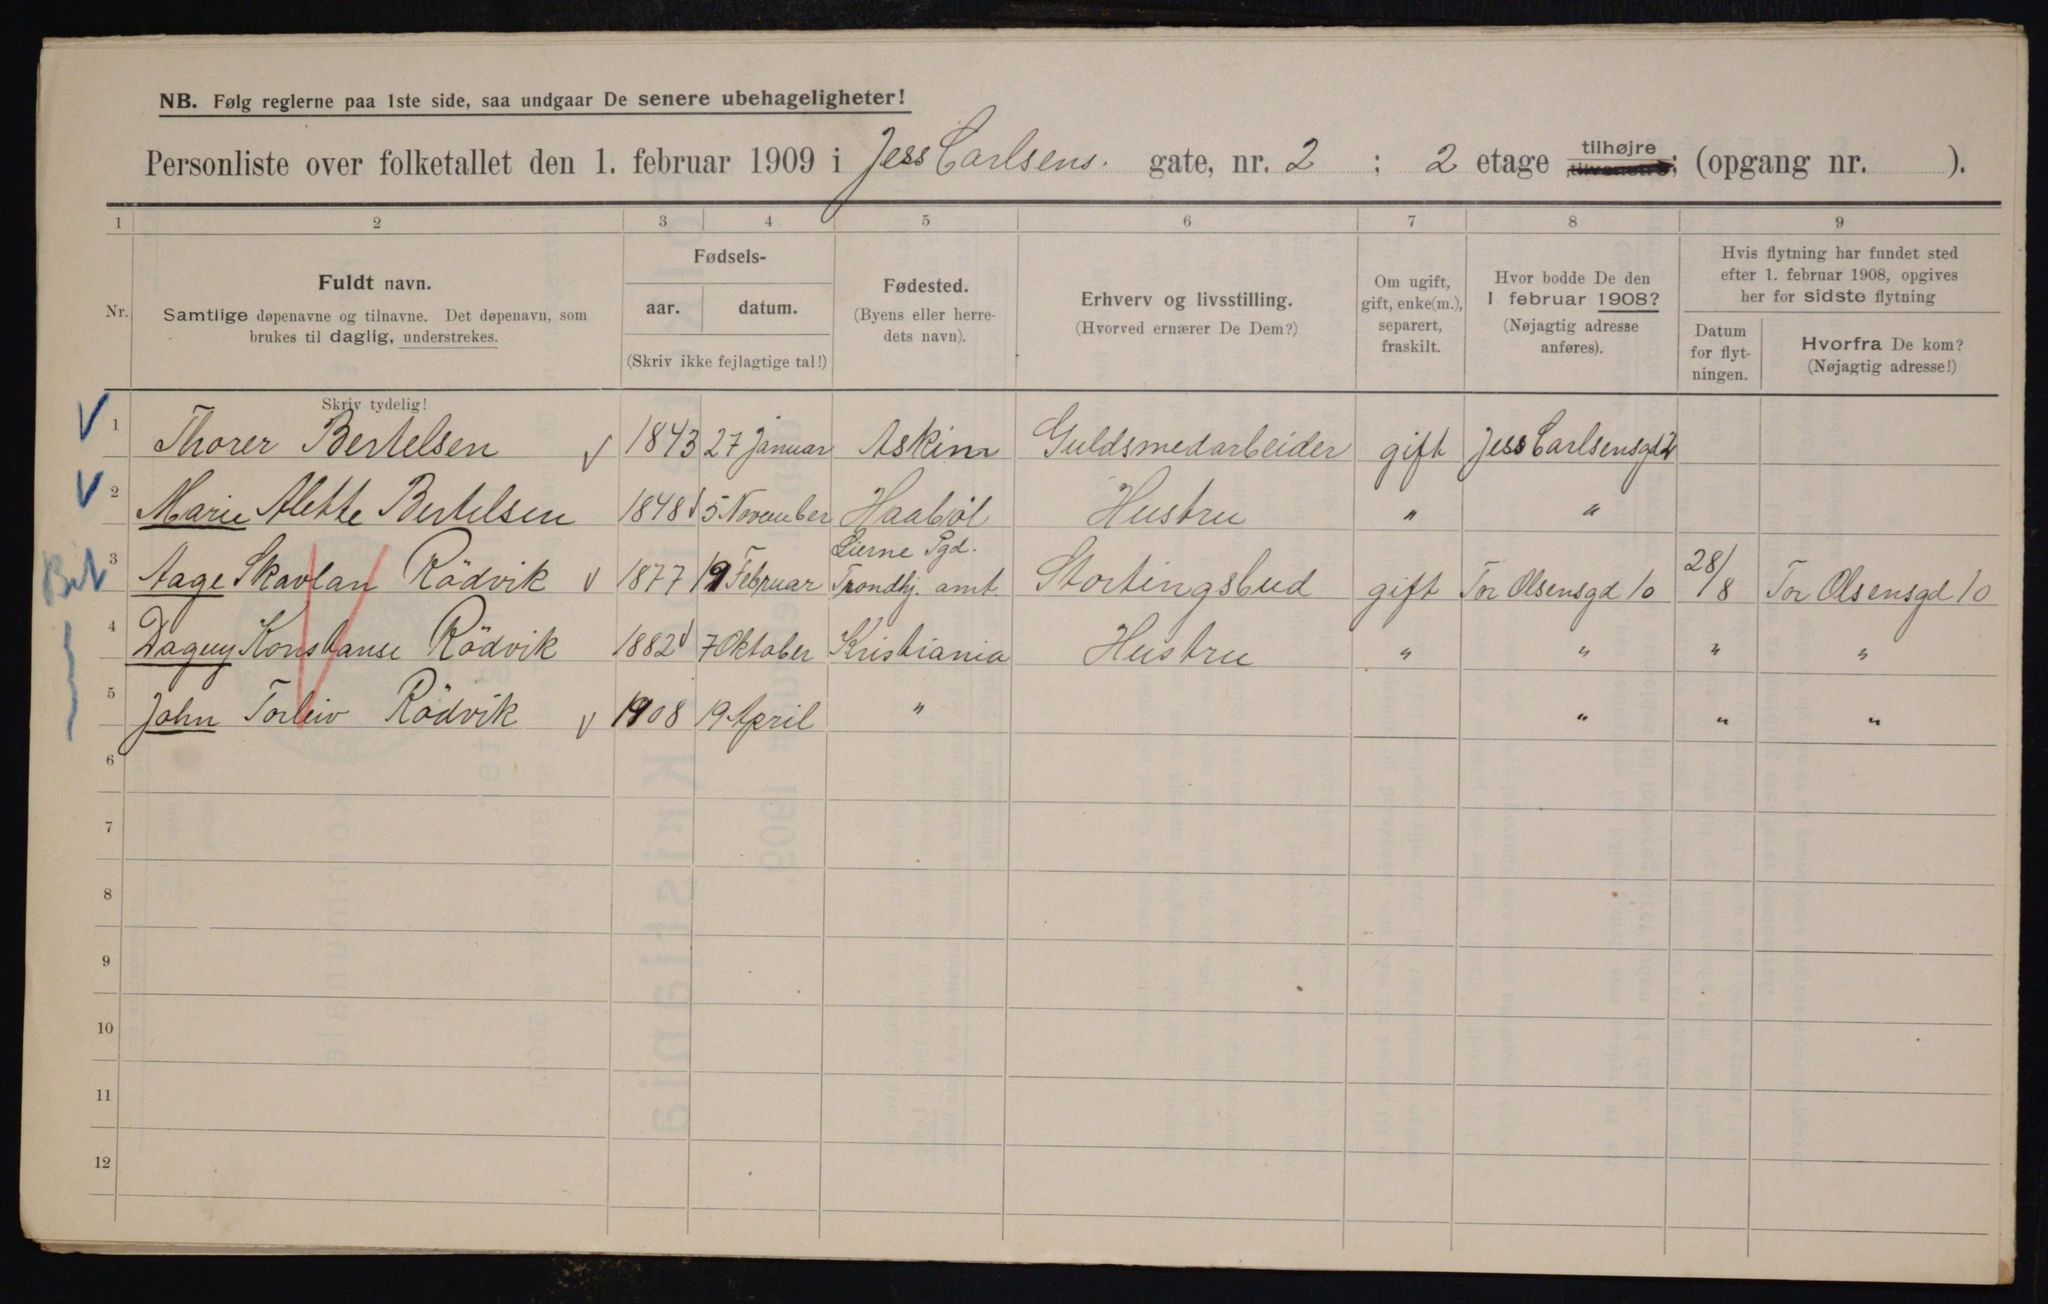 NB. Følg reglerne paa 1ste side, saa undgaar De senere ubehageligheter!
Personliste over folketallet den 1. februar 1909 i Jess Carlsens. gate, nr. 2 ; 2 etage tilhøjre (opgang nr. ).
1 2 3 4 5 6 7 8 9
Nr.
Fuldt navn.
Samtlige døpenavne og tilnavne. Det døpenavn, som
brukes til daglig, understrekes.
Skriv tydelig!
Fødsels-
aar. datum.
(Skriv ikke fejlagtige tal!)
Fødested.
(Byens eller herre-
dets navn).
Erhverv og livsstilling.
(Hvorved ernærer De Dem?)
Om ugift,
gift, enke(m.),
separert,
fraskilt.
Hvor bodde De den
1 februar 1908?
(Nøjagtig adresse
anføres).
Hvis flytning har fundet sted
efter 1. februar 1908, opgives
her for sidste flytning
Datum
for flyt-
ningen.
Hvorfra De kom?
(Nøjagtig adresse!)
1 Thorer Bertelsen 1843 27 Januar Askim Guldsmedarbeider gift Jess Carlsensgd 2
2 Marie Alette Bertelsen 1848 5 November Haabøl Hustru " "
Lierne Pgd.
3 Aage Skavlan Rödvik 1877 19 Februar Trondhj. amt. Stortingsbud gift Tor Olsensgd 10 28/8 Tor Olsensgd 10
4 Dagny Konstanse Rödvik 1882 7 Oktober Kristiania Hustru " " " "
5 John Torleiv Rödvik 1908 19 April " " " "
6
7
8
9
10
11
12